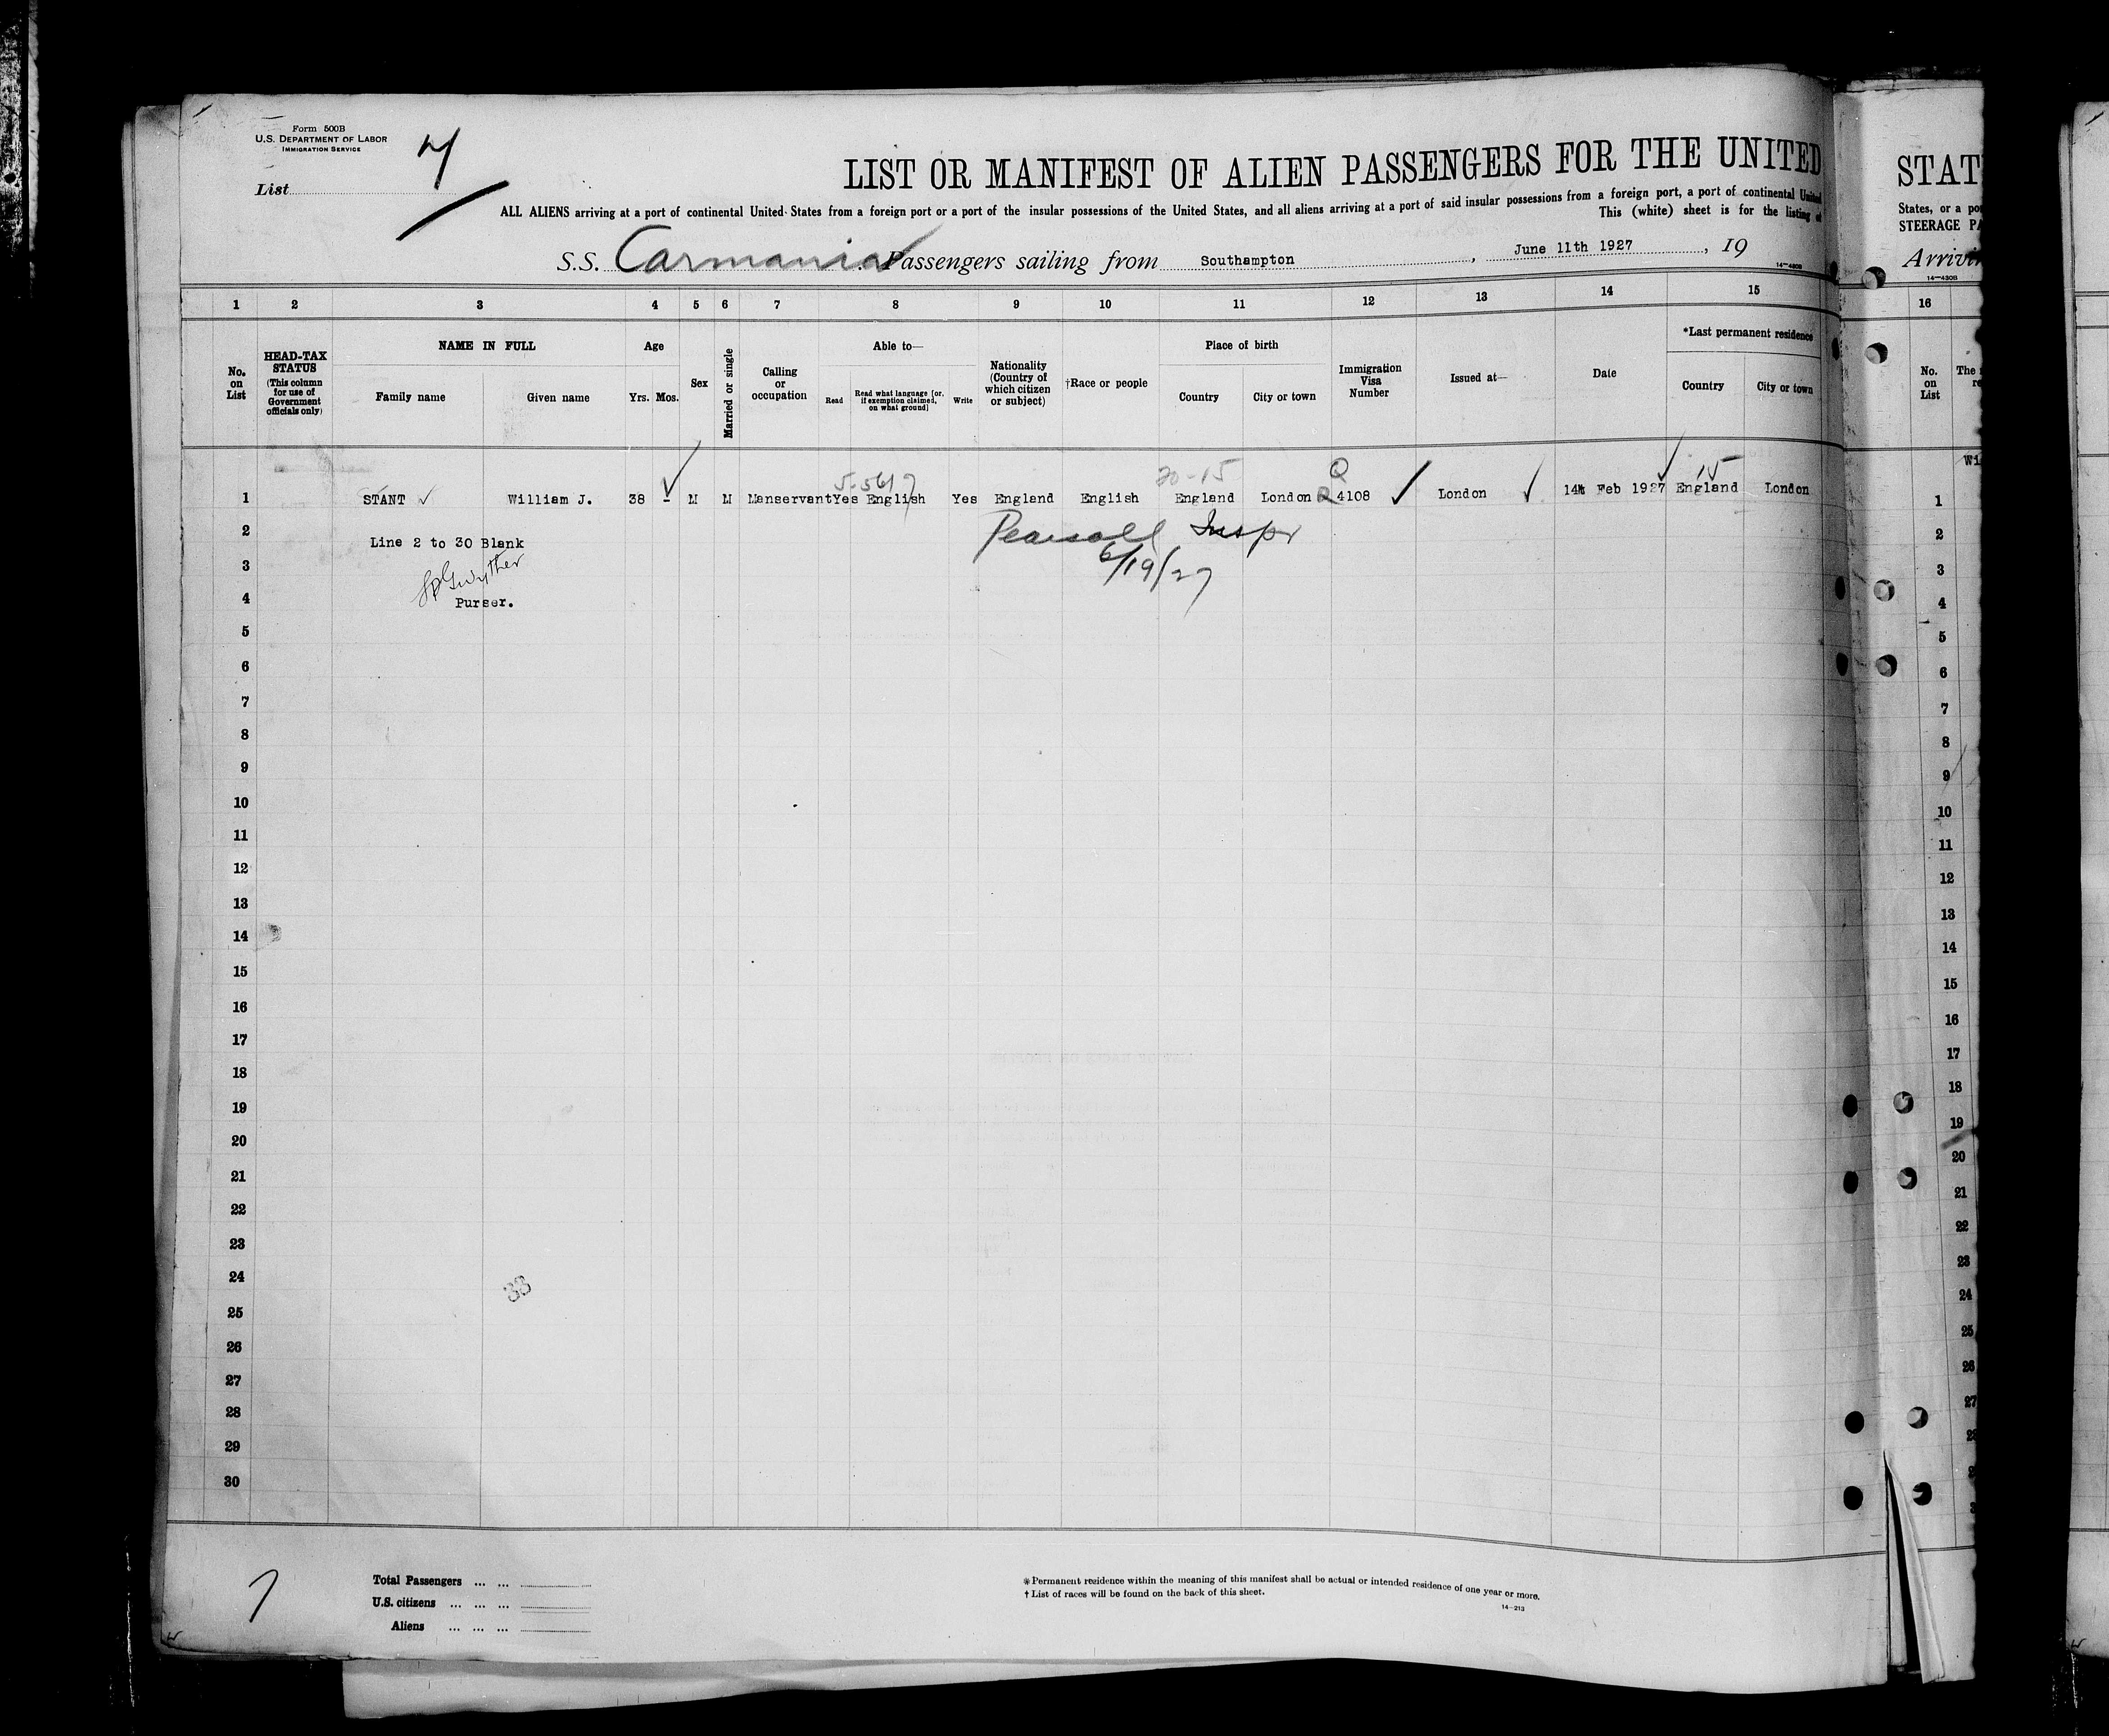 Form 500B
U.S. DEPARTMENT OF LABOR
IMMIGRATION SERVICE
List
LIST OR MANIFEST OF ALIEN PASSENGERS FOR THE UNITED
ALL ALIENS arriving at a port of continental United States from a foreign port or a port of the insular possessions of the United States, and all aliens arriving at a port of said insular possessions from a foreign port, a port of continental United
This (white) sheet is for the listing of
S.S. Carmania Passengers sailing from Southampton, June 11th 1927, 19
14-430B
1 2 3 4 5 6 7 8 9 10 11 12 13 14 15
No. on List
HEAD-TAX STATUS (This column for use of Government officials only)
NAME IN FULL
Family name
Given name
Age
Yrs. Mos.
Sex
Married or single
Calling or occupation
Able to—
Read
Read what language [or, if exemption claimed, on what ground]
Write
Nationality (Country of which citizen or subject)
†Race or people
Place of birth
Country
City or town
Immigration Visa Number
Issued at—
Date
*Last permanent residence
Country
City or town
5-5617 20-15 Q 15
1 STANT William J. 38 - M M Manservant Yes English Yes England English England London 4108 London 14 Feb 1927 England London
Pearsall Inspr
6/19/27
2 Line 2 to 30 Blank
3
4 Purser.
5
6
7
8
9
10
11
12
13
14
15
16
17
18
19
20
21
22
23
24
33
25
26
27
28
29
30
Total Passengers ... ...
U.S. citizens ... ... ...
Aliens ... ... ...
*Permanent residence within the meaning of this manifest shall be actual or intended residence of one year or more.
† List of races will be found on the back of this sheet.
14-213
STAT
States, or a po
STEERAGE PA
Arrivin
14-430B
16
No. on List
The
1
2
3
4
5
6
7
8
9
10
11
12
13
14
15
16
17
18
19
20
21
22
23
24
25
26
27